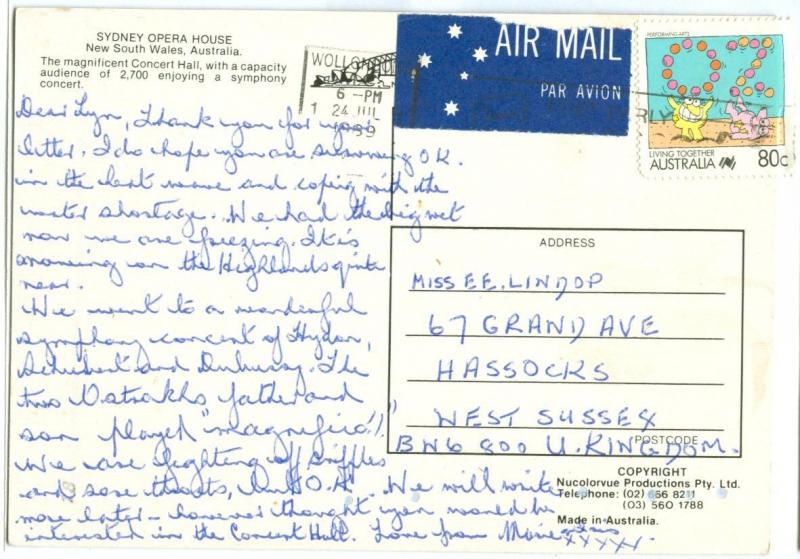 SYDNEY OPERA HOUSE
New South Wales, Australia.
The magnificent Concert Hall, with a capacity
audience of 2,700 enjoying a symphony
concert.
WOLLON
6 - PM
24 JUL
AIR MAIL
PAR AVION
PERFORMING ARTS
OZ
LIVING TOGETHER
AUSTRALIA 80c
Dear Lyn, Thank you for your
letter. I do hope you are surviving OK.
in the heat wave and coping with the
water shortage. We had the big wet
now we are freezing. It is
snowing on the Highlands quite
near.
We went to a wonderful
symphony concert of Hydon,
Schubert and The
two Ostrakhs father and
son played "magnifico"!
We are fighting off sniffles
and sore throats, but O.K. We will write
more later - however thought you would be
interested in the Concert Hall. Love from
xxxxx.
ADDRESS
MISS E.E. LINDOP
67 GRAND AVE
HASSOCKS
WEST SUSSEX
POSTCODE
BN6 8DD U. KINGDOM.
COPYRIGHT
Nucolorvue Productions Pty. Ltd.
Telephone: (02) 666 8211
(03) 560 1788
Made in Australia.